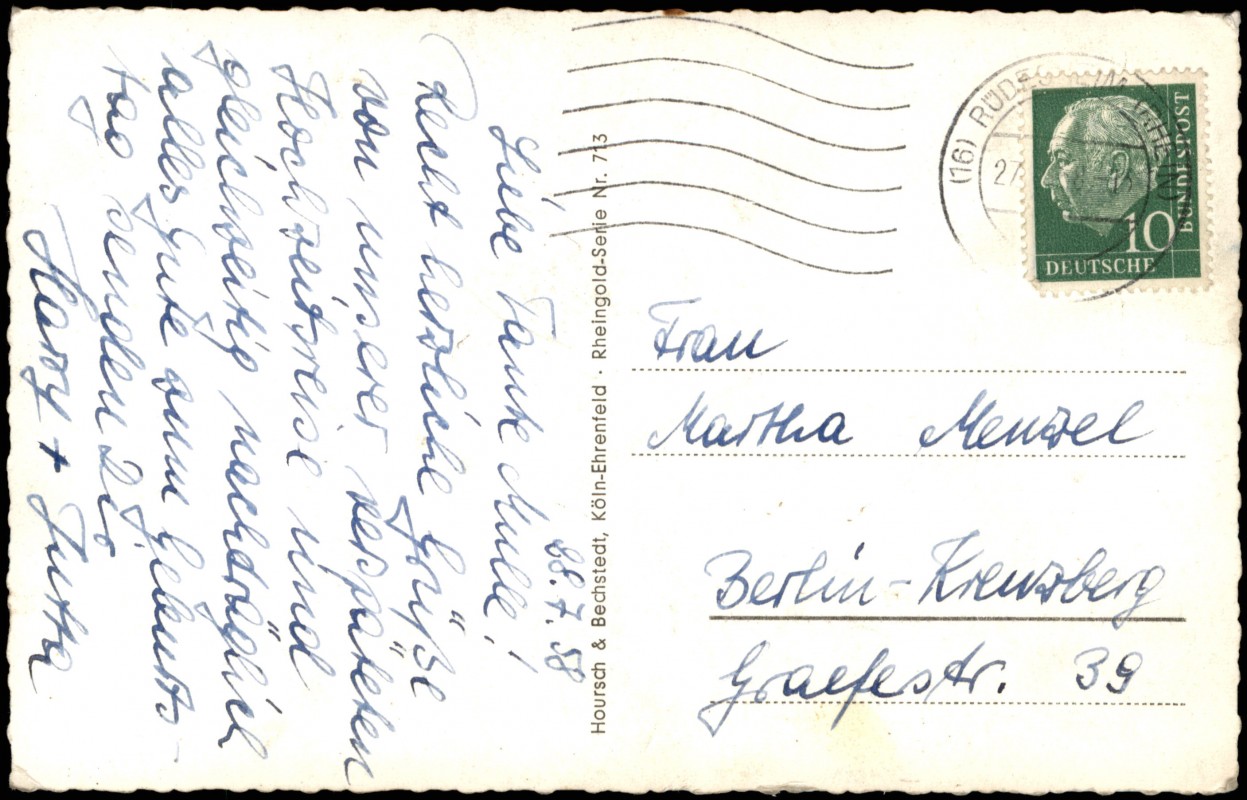 28.7.58
Liebe Tante Mulle!
Recht herzliche Grüße
von unserer verspäteten
Hochzeitsreise und
gleichzeitig nachträglich
alles Gute zum Geburts-
tag senden Dir
Hardy + Jutta
Hoursch & Bechstedt, Köln-Ehrenfeld · Rheingold-Serie Nr. 713
(16) RÜDESHEIM (RHEIN)
27.
DEUTSCHE
BUNDESPOST
10
Frau
Martha Menzel
Berlin-Kreuzberg
Graefestr. 39